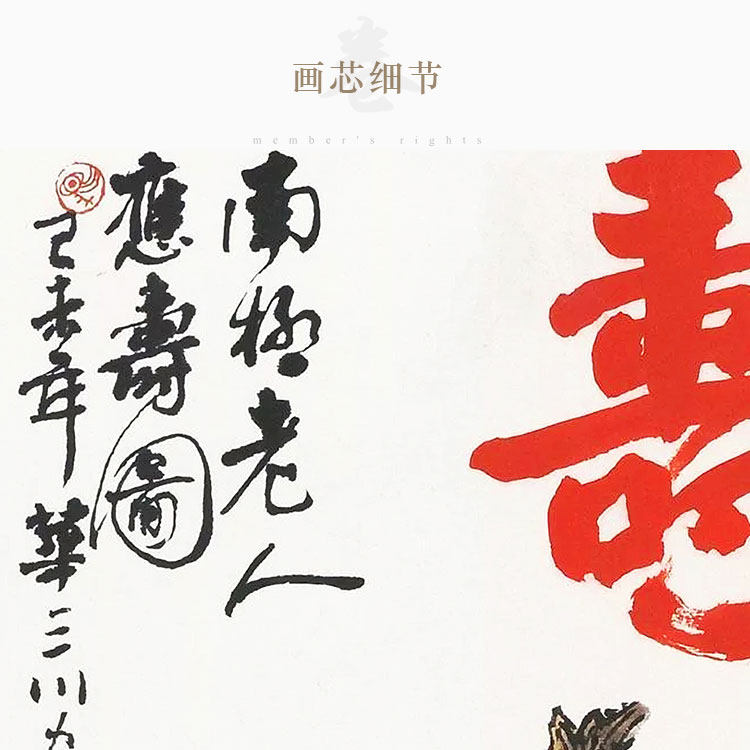 画芯细节
member's rights
南極老人
應壽圖
己未年華三川